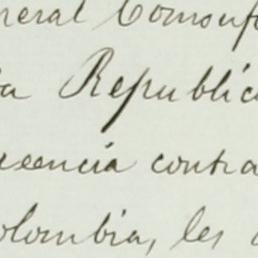 neral Comonf
a Republic
uencia contra
olombia, les